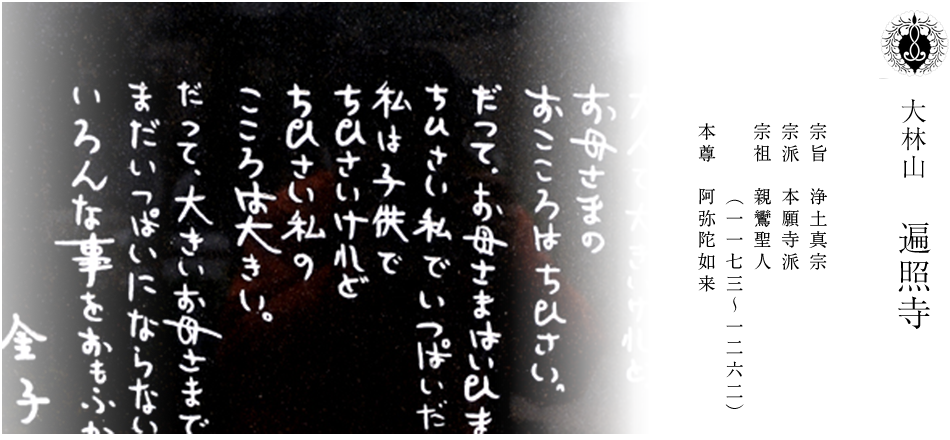 大林山 遍照寺
宗旨 浄土真宗
宗派 本願寺派
宗祖 親鸞聖人
(一一七三〜一二六二)
本尊 阿弥陀如来
大人で大きいけれど
お母さまの
おこころはちひさい。
だって、お母さまはいひま
ちひさい私でいっぱいだ
私は子供で
ちひさいけれど
ちひさい私の
こころは大きい。
だって、大きいお母さまで
まだいっぱいにならない
いろんな事をおもふか
金子